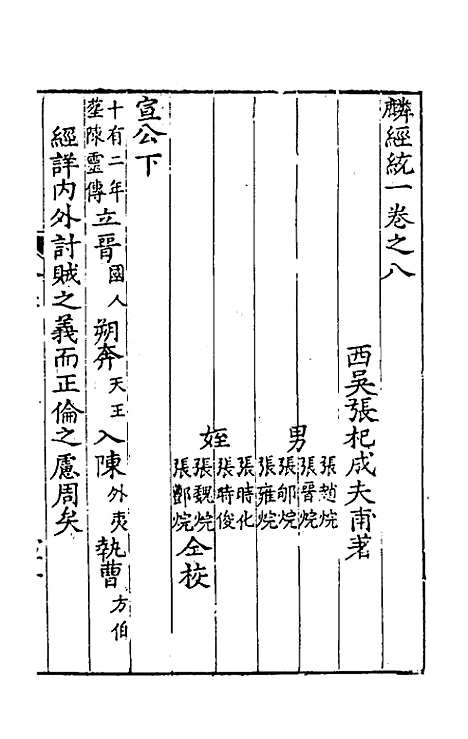 麟經統一卷之八
西吳張杞成夫甫著
男
張趙烷
張晉烷
張邹烷
張雍烷
姪
張時化
張時俊
張魏烷
張酆烷
仝校
宣公下
十有二年葬陳靈傳立晉國人朔奔天王入陳外夷執曹方伯
經詳内外討賊之義而正倫之慮周矣